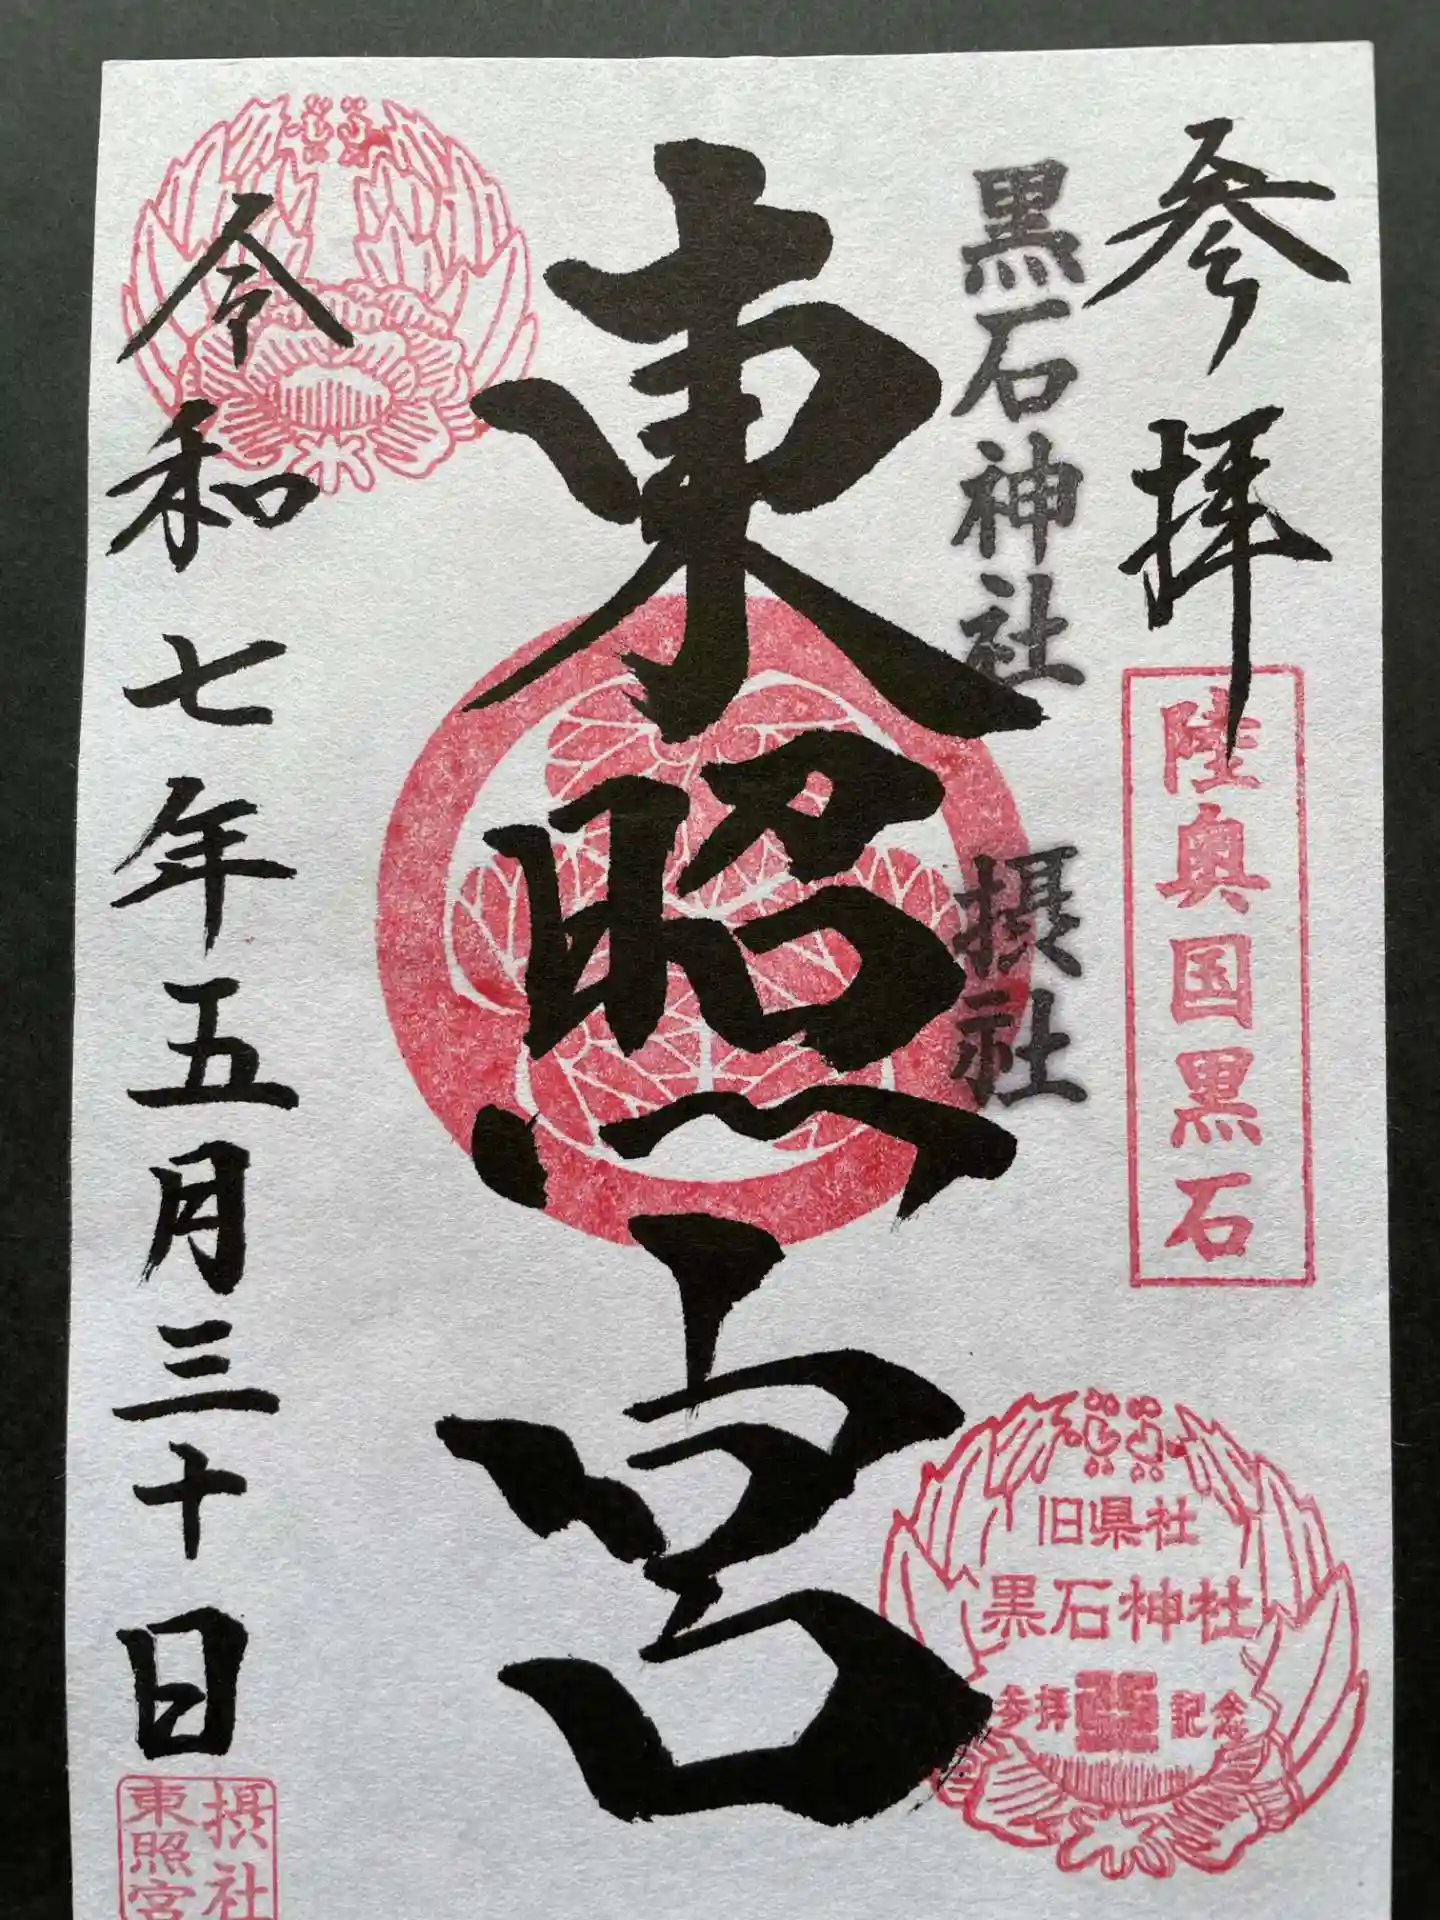 参拝
陸奥国黒石
黒石神社 摂社
東照宮
令和七年五月三十日
旧県社
黒石神社
参拝
記念
摂社
東照宮